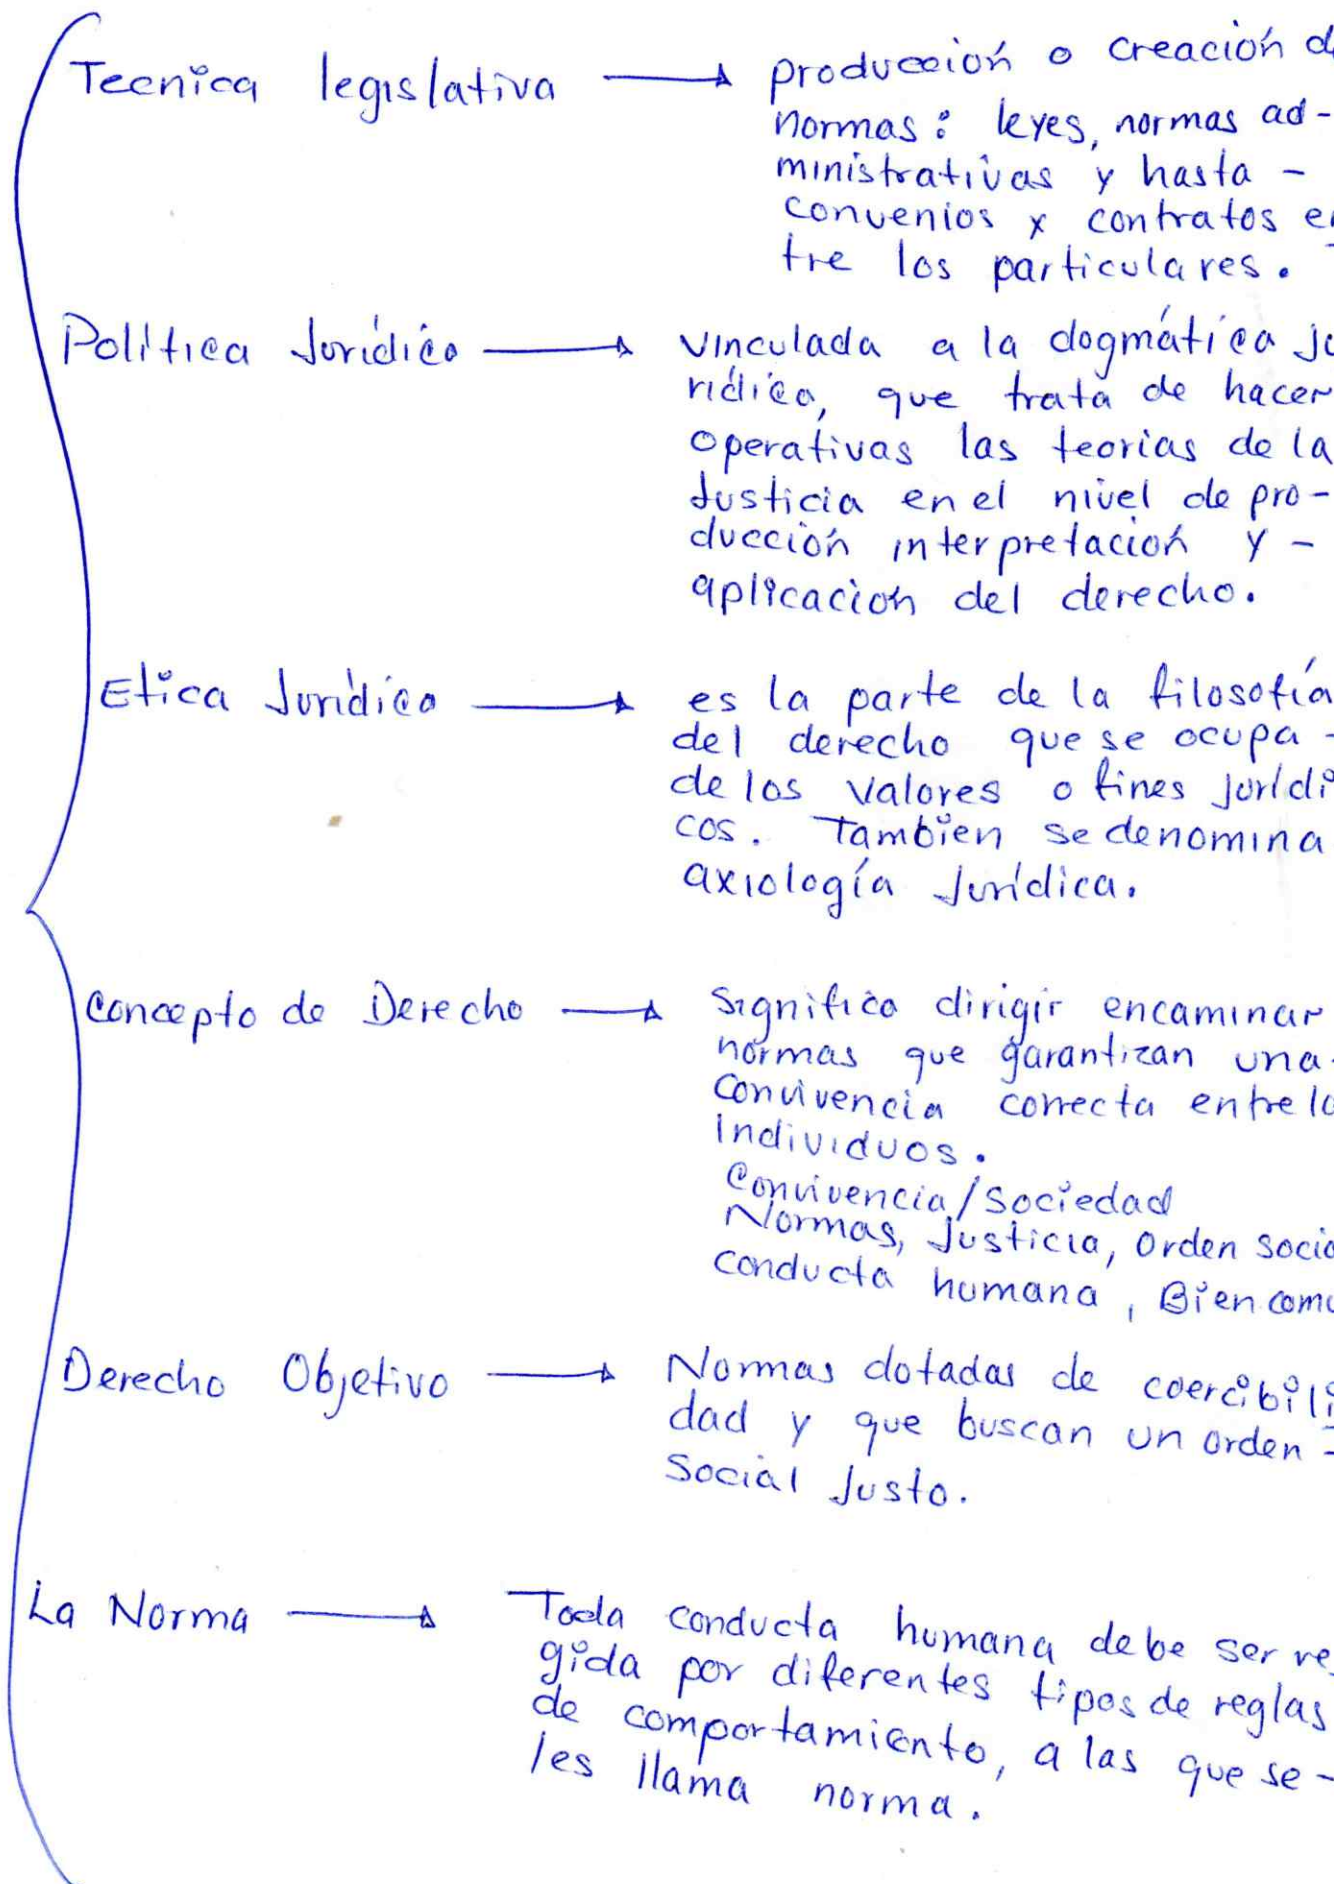 Tecnica legislativa → producción o creación d
normas: leyes, normas ad-
ministrativas y hasta -
convenios x contratos en
tre los particulares.
Política Jurídica → vinculada a la dogmática ju
rídica, que trata de hacer
operativas las teorias de la
Justicia en el nivel de pro-
ducción interpretación y -
aplicacion del derecho.
Etica Jurídica → es la parte de la filosofía
del derecho que se ocupa -
de los valores o fines jurídi
cos. Tambien se denomina
axiología Jurídica.
Concepto de Derecho → Significa dirigir encaminar
normas que garantizan una-
Convivencia correcta entre lo
Individuos.
Convivencia/Sociedad
Normas, Justicia, Orden socia
conducta humana, Bien comu
Derecho Objetivo → Normas dotadas de coercibili
dad y que buscan un orden -
Social Justo.
La Norma → Toda conducta humana debe ser re
gida por diferentes tipos de reglas
de comportamiento, a las que se-
les llama norma.